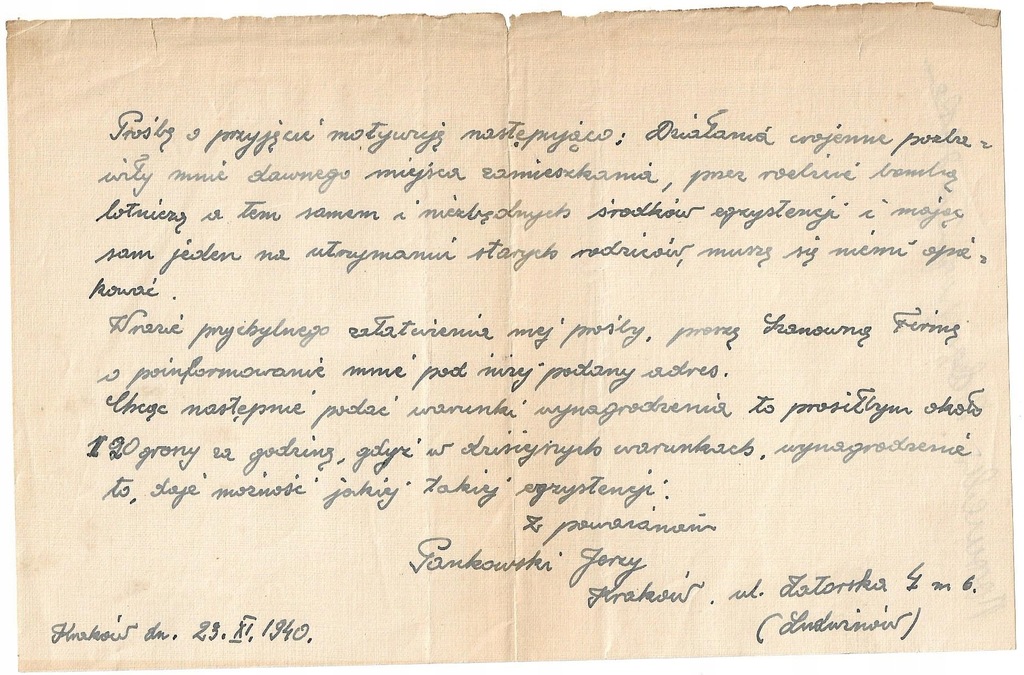 Prośbę o przyjęcie motywuję następująco: Działania wojenne pozba-
wiły mnie dawnego miejsca zamieszkania, przez rozbicie bombą
lotniczą a tem samem i niezbędnych środków egzystencji i mając
sam jeden na utrzymaniu starych rodziców, muszę się niemi opie-
kować.
W razie przychylnego załatwienia mej prośby, proszę Szanowną Firmę
o poinformowanie mnie pod niżej podany adres.
Chcąc następnie podać warunki wynagrodzenia to prosiłbym około
120 groszy za godzinę, gdyż w dzisiejszych warunkach, wynagrodzenie
to, daje możność jakiej takiej egzystencji.
Z poważaniem
Pankowski Jerzy
Kraków, ul. Zatorska 7 m 6.
(Ludwinów)
Kraków dn. 23. XI. 1940.